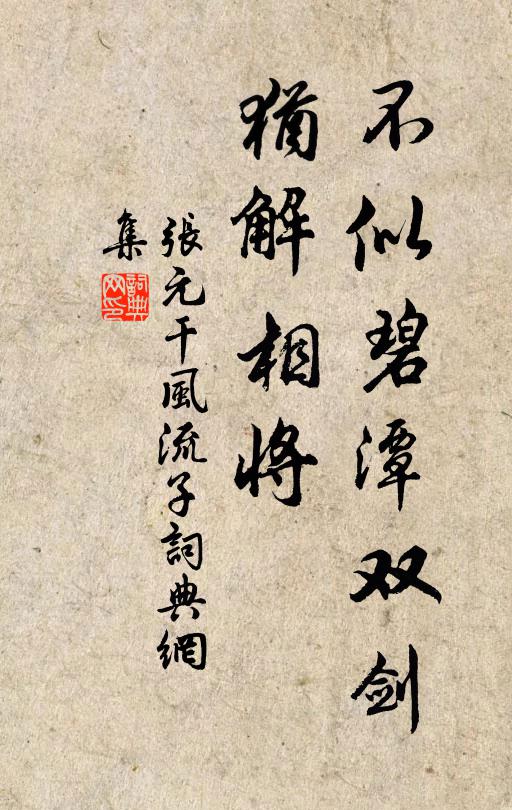 不似碧潭双剑
猶解相将
張元干風流子詞典網
集
詞典网印